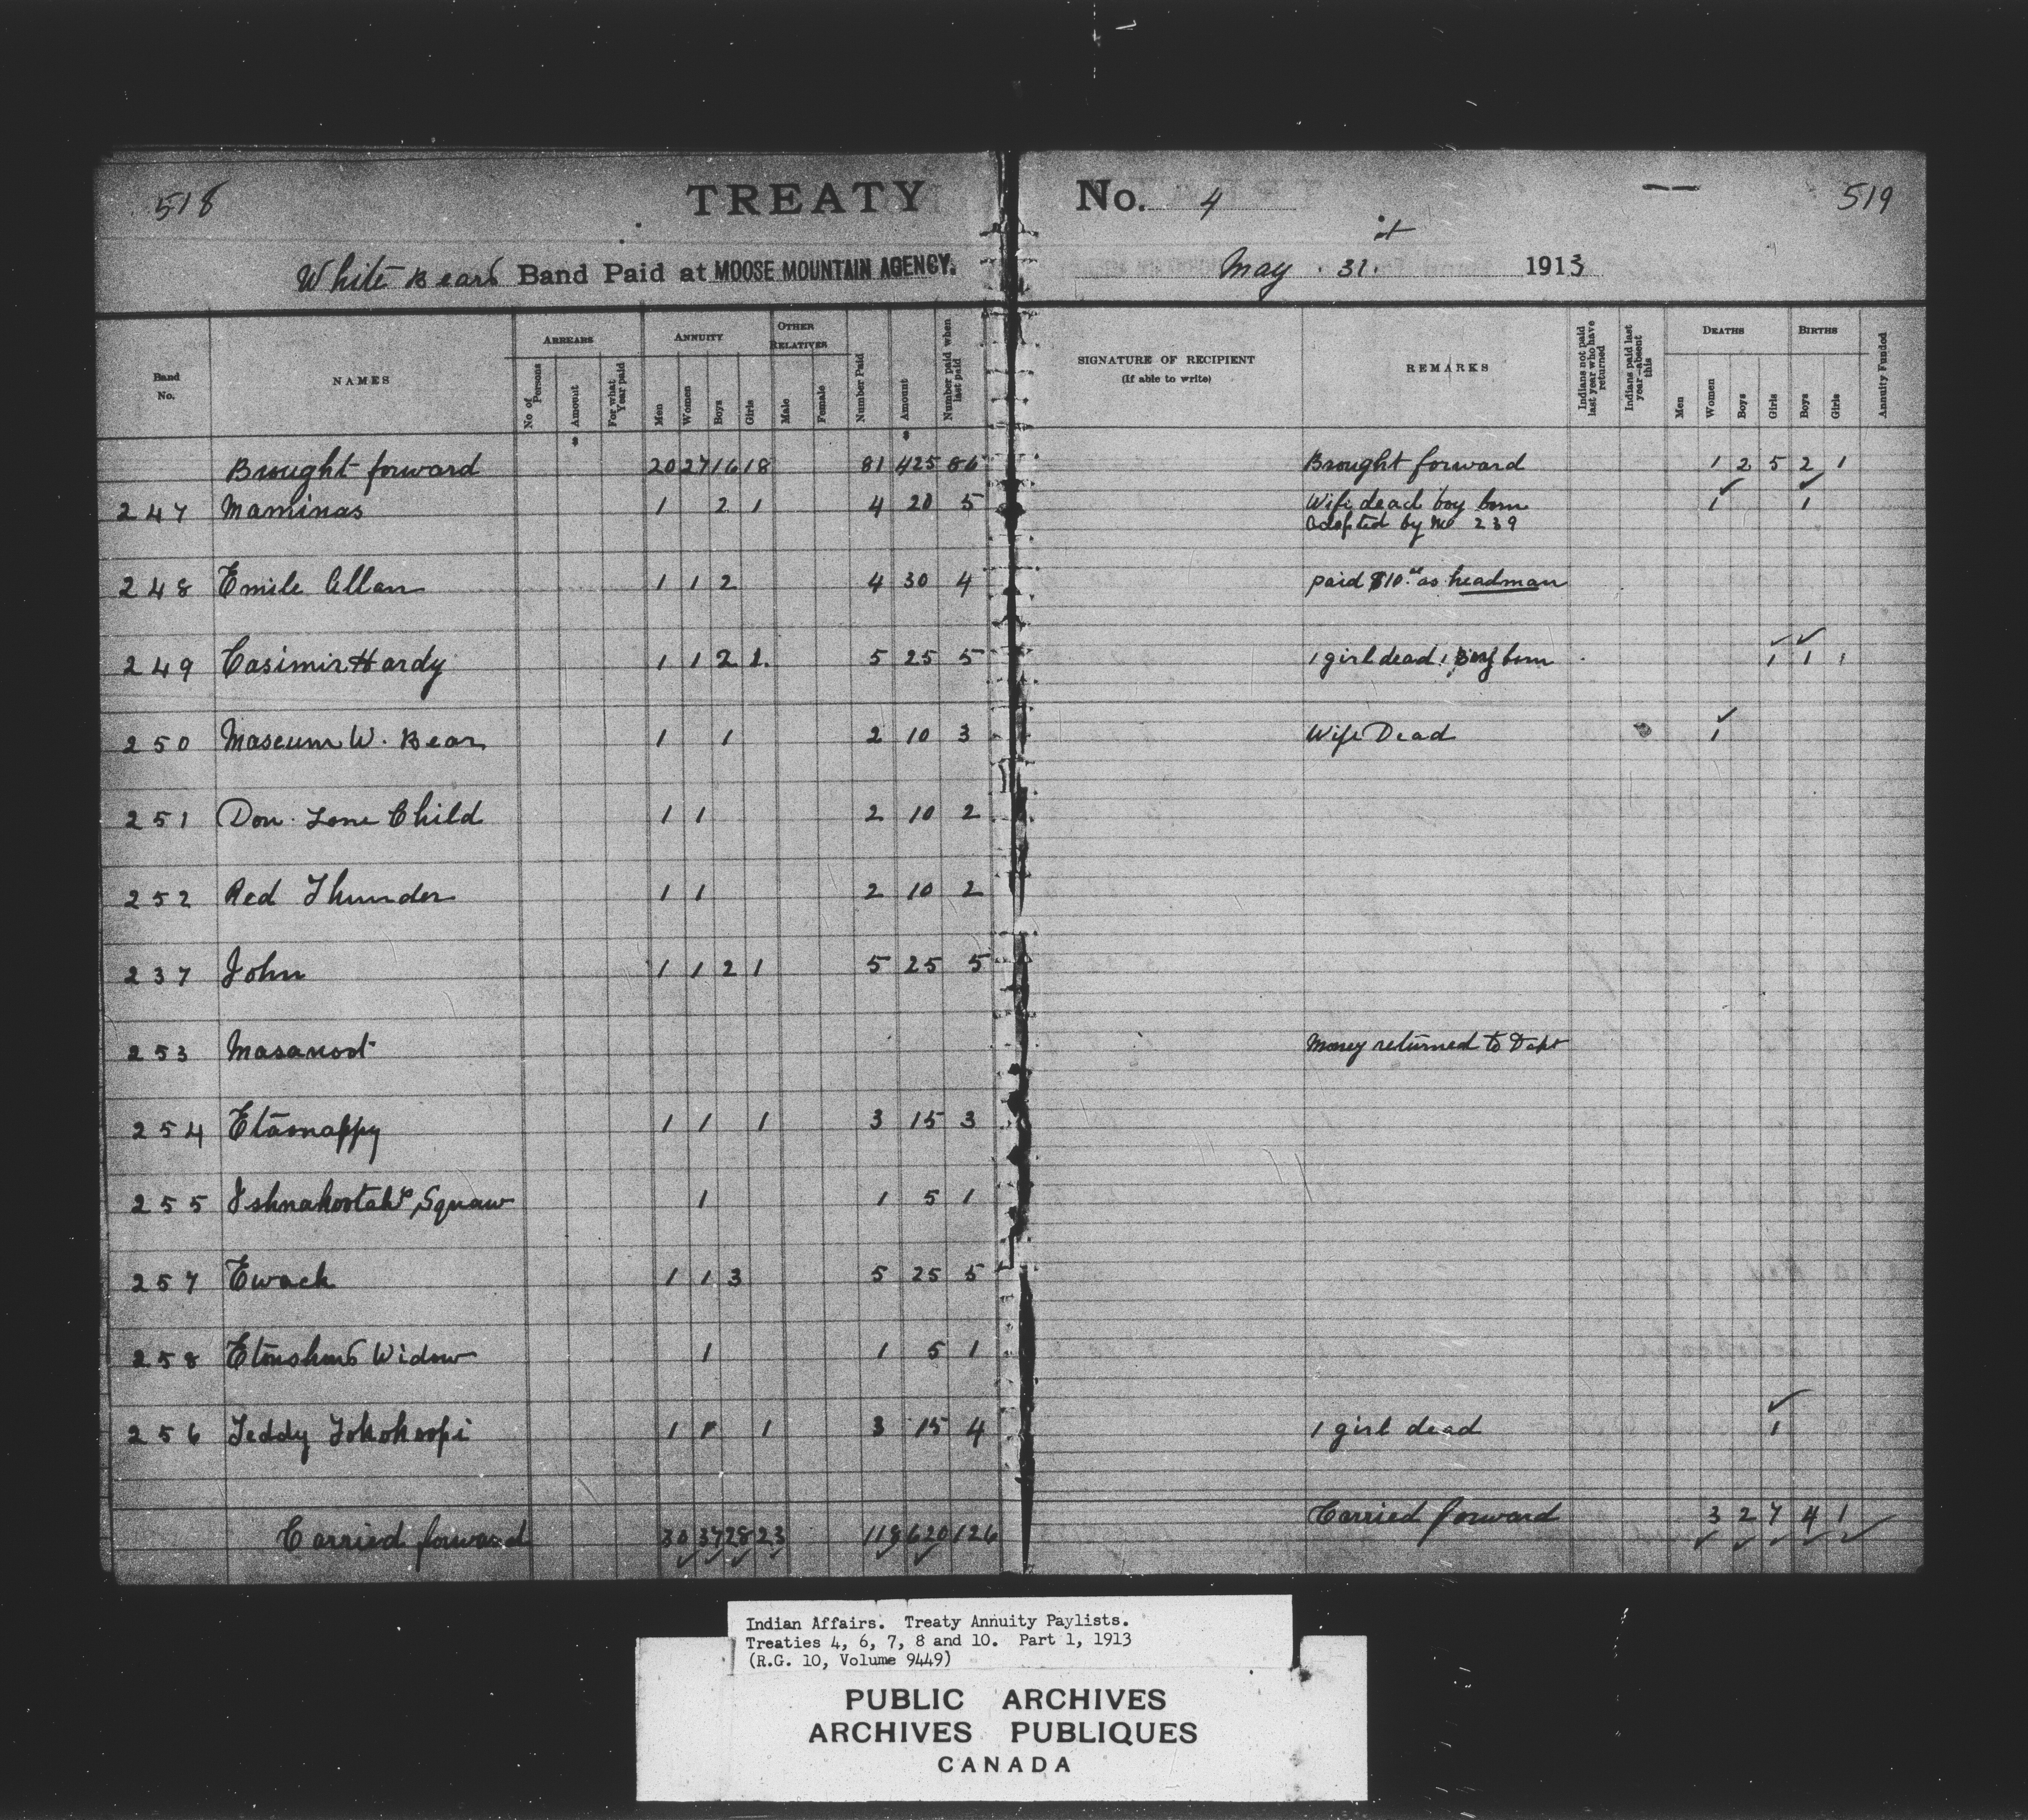 518
TREATY No. 4
519
White Bears Band Paid at MOOSE MOUNTAIN AGENCY. May 31. 1913
Band No. NAMES ARREARS No of Persons Amount For what Year paid ANNUITY Men Women Boys Girls OTHER RELATIVES Male Female Number Paid Amount Number paid when last paid SIGNATURE OF RECIPIENT (If able to write) REMARKS Indians not paid last year who have returned Indians paid last year—absent this DEATHS Men Women Boys Girls BIRTHS Boys Girls Annuity Funded
Brought forward 20 27 16 18 81 425 86 Brought forward 1 2 5 2 1
247 Maminas 1 2 1 4 20 5 Wife dead boy born 1 1
adopted by No 239
248 Emile Allan 1 1 2 4 30 4 paid $10.00 as headman
249 Casimir Hardy 1 1 2 1 5 25 5 1 girl dead 1 Boy born 1 1
250 Maseum W. Bear 1 1 2 10 3 Wife Dead 1
251 Don Lone Child 1 1 2 10 2
252 Red Thunder 1 1 2 10 2
237 John 1 1 2 1 5 25 5
253 Masanost Money returned to Dept
254 Etasnappy 1 1 1 3 15 3
255 Ishnahootah's Squaw 1 1 5 1
257 Ewack 1 1 3 5 25 5
258 Widow 1 1 5 1
256 Teddy 1 1 1 3 15 4 1 girl dead 1
Carried forward 30 37 28 23 118 620 126 Carried forward 3 2 7 4 1
Indian Affairs. Treaty Annuity Paylists.
Treaties 4, 6, 7, 8 and 10. Part 1, 1913
(R.G. 10, Volume 9449)
PUBLIC ARCHIVES
ARCHIVES PUBLIQUES
CANADA